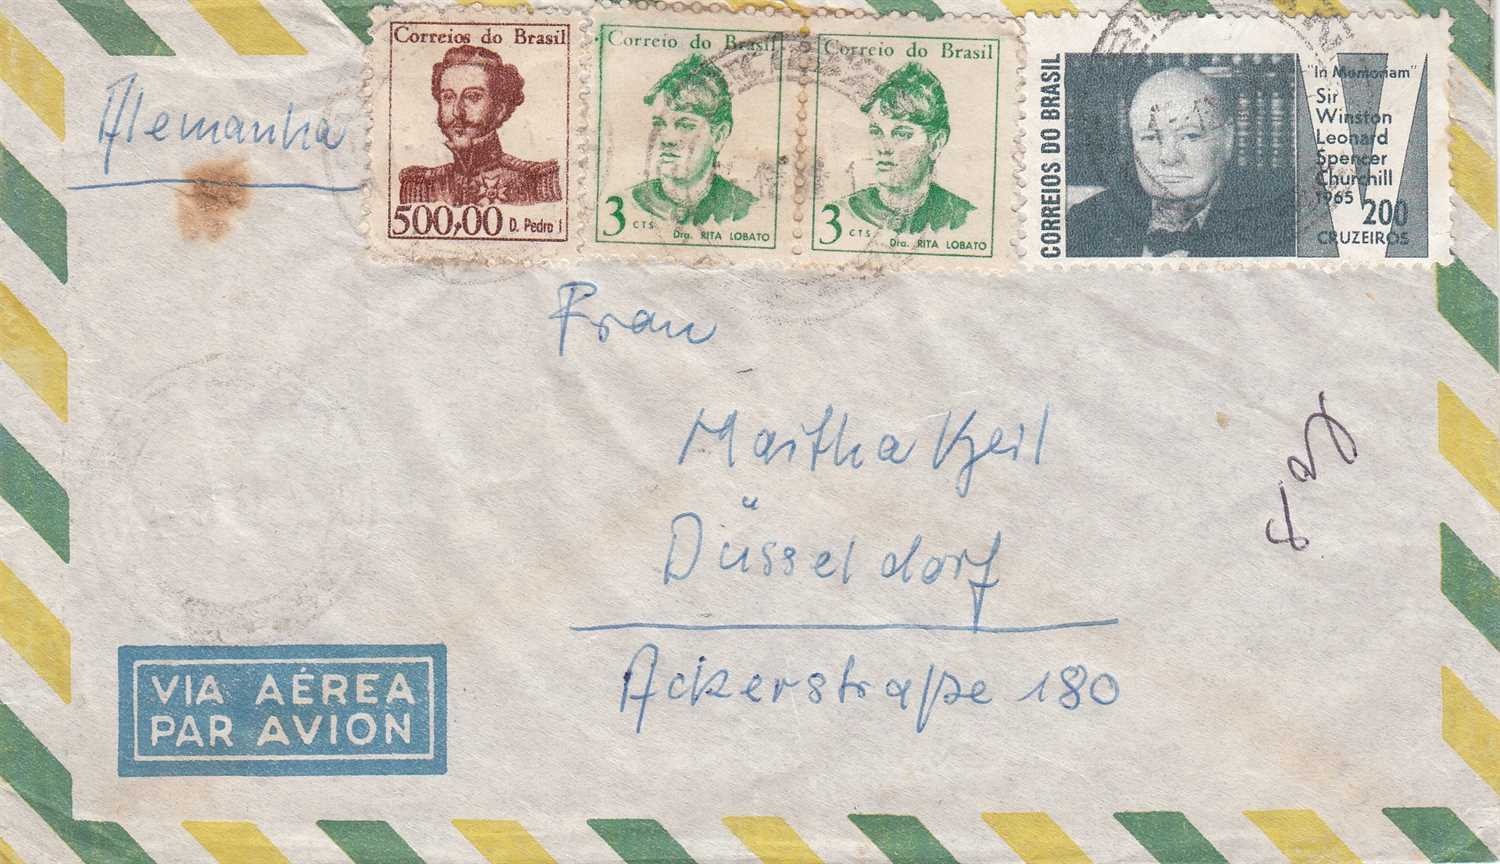 Correios do Brasil
500,00 D. Pedro I
Correio do Brasil
3 CTS
Dra. RITA LOBATO
Correio do Brasil
3 CTS
Dra. RITA LOBATO
CORREIOS DO BRASIL
"In Memoriam"
Sir
Winston
Leonard
Spencer
Churchill
1965
200
CRUZEIROS
Alemanha
Frau
Martha Keil
Düsseldorf
Ackerstraße 180
VIA AÉREA
PAR AVION